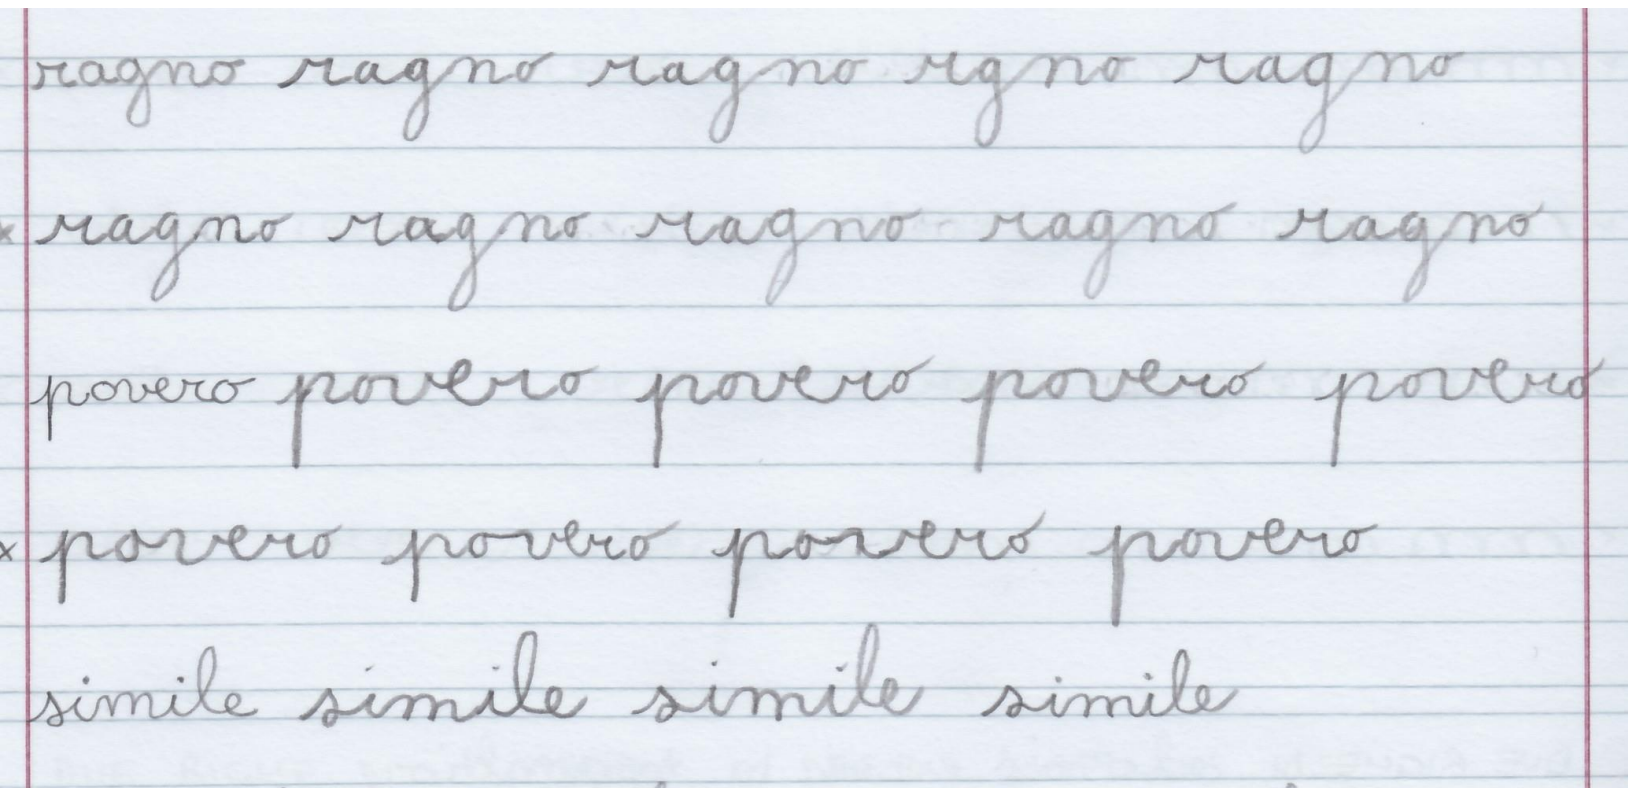 ragno ragno ragno rgno ragno
x ragno ragno ragno ragno ragno
povero povero povero povero povero
x povero povero povero povero
simile simile simile simile